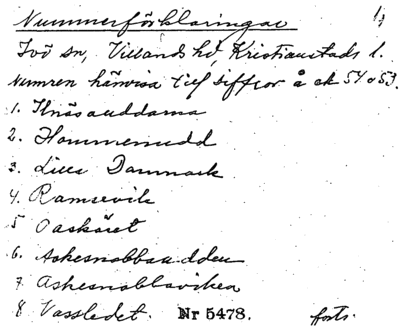 Nummerförklaringar 1,
Ivö sn, Villands hd, Kristianstads l.
Numren hänvisa till siffror å ek 54 o 53.
1. Knäsauddarna
2. Hommenudd
3. Lilla Danmark
4. Ramsevik
5 Oaskäret
6. Askesnabbaudden
7 Askesnabbaviken
8 Vassledet. Nr 5478. forts.